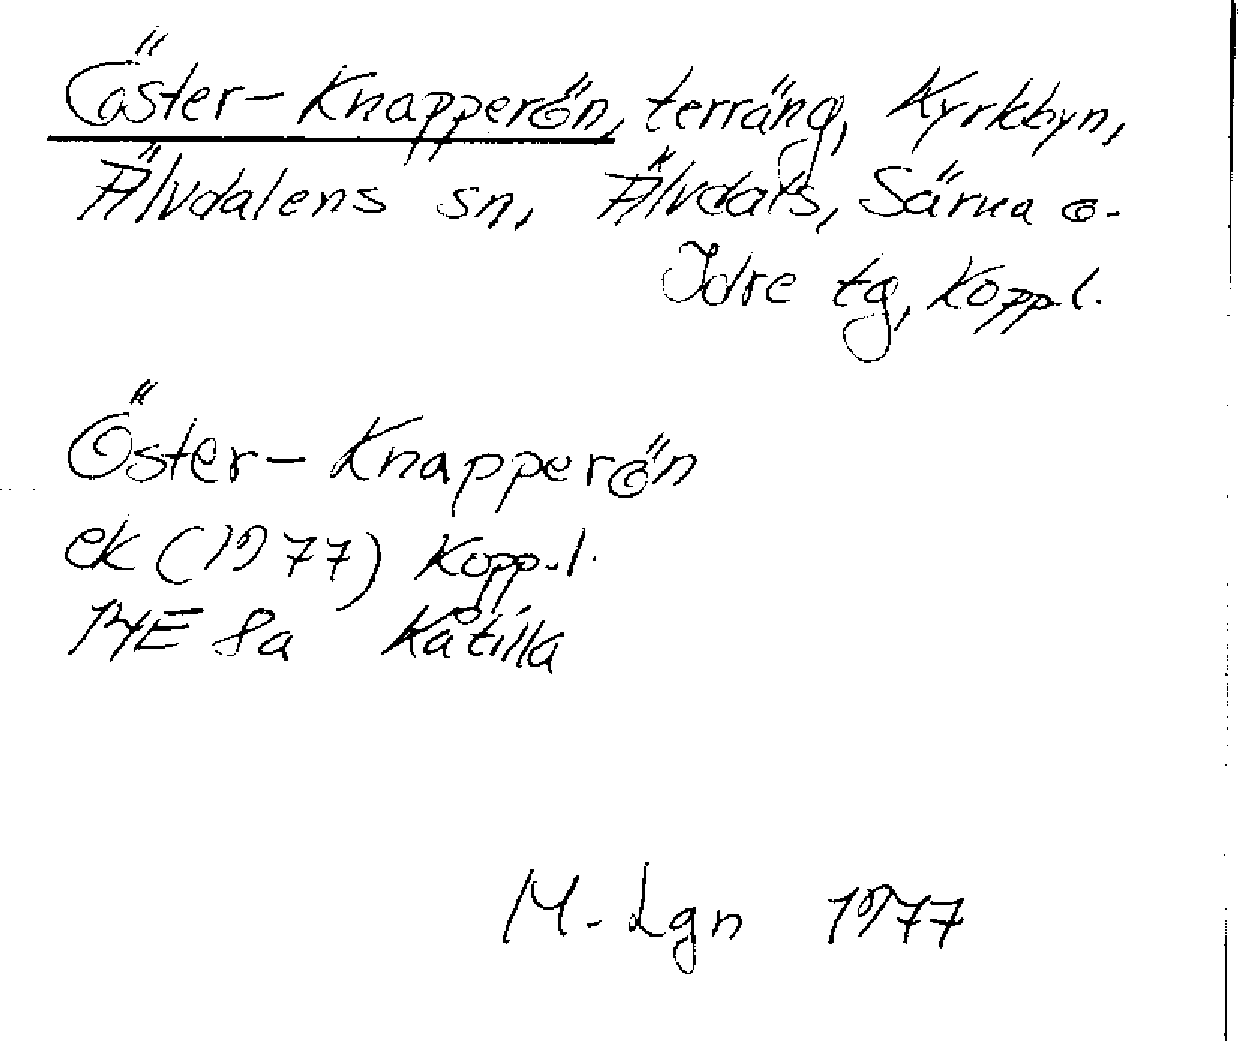 Öster-Knapperön, terräng, Kyrkbyn,
Älvdalens sn, Älvdals, Särna o.
Idre tg, Kopp.l.
Öster-Knapperön
ek (1977) Kopp.l.
14E 8a Kåtilla
M. Lgn 1977